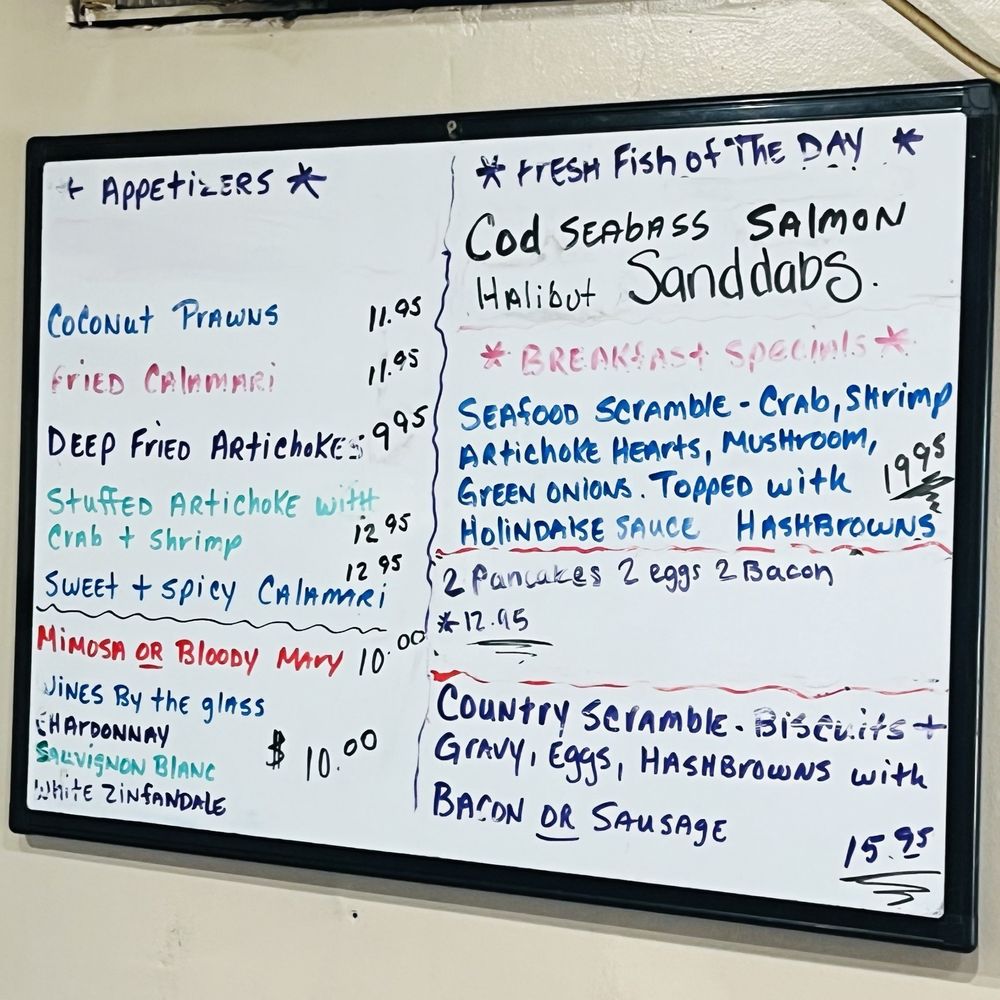 * APPETIZERS *
COCONUT PRAWNS 11.95
FRIED CALAMARI 11.95
DEEP FRIED ARTICHOKES 9 95
STUFFED ARTICHOKE WITH
CRAB + SHRIMP 12 95
SWEET + SPICY CALAMARI 12 95
MIMOSA OR BLOODY MARY 10.00
WINES BY THE GLASS
CHARDONNAY
SAUVIGNON BLANC $ 10.00
WHITE ZINFANDALE
* FRESH FISH OF THE DAY *
COD SEABASS SALMON
HALIBUT Sanddabs.
* BREAKFAST SPECIALS *
SEAFOOD SCRAMBLE - CRAB, SHRIMP
ARTICHOKE HEARTS, MUSHROOM,
GREEN ONIONS. TOPPED WITH 19 95
HOLINDAISE SAUCE HASHBROWNS
2 Pancakes 2 eggs 2 Bacon
*12.95
COUNTRY SCRAMBLE - BISCUITS +
GRAVY, EGGS, HASHBROWNS WITH
BACON OR SAUSAGE
15.95